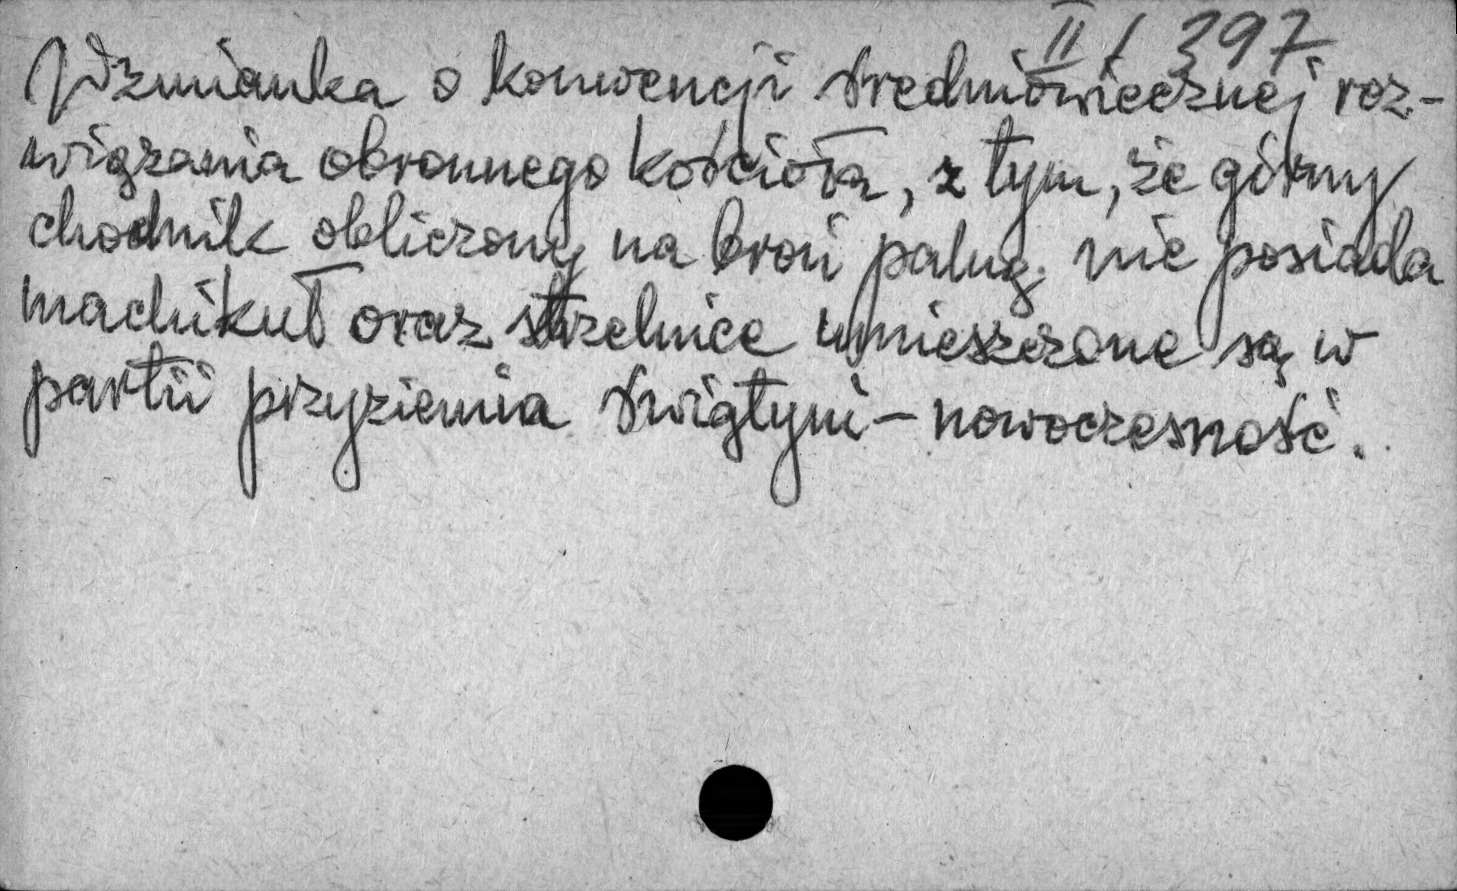 II / 397
Wzmianka o konwencji średniowiecznej roz-
wiązania obronnego kościoła, z tym, że górny
chodnik obliczony na broń palną nie posiada
machikuł oraz strzelnice umieszczone są w
partii przyziemia świątyni – nowoczesność.